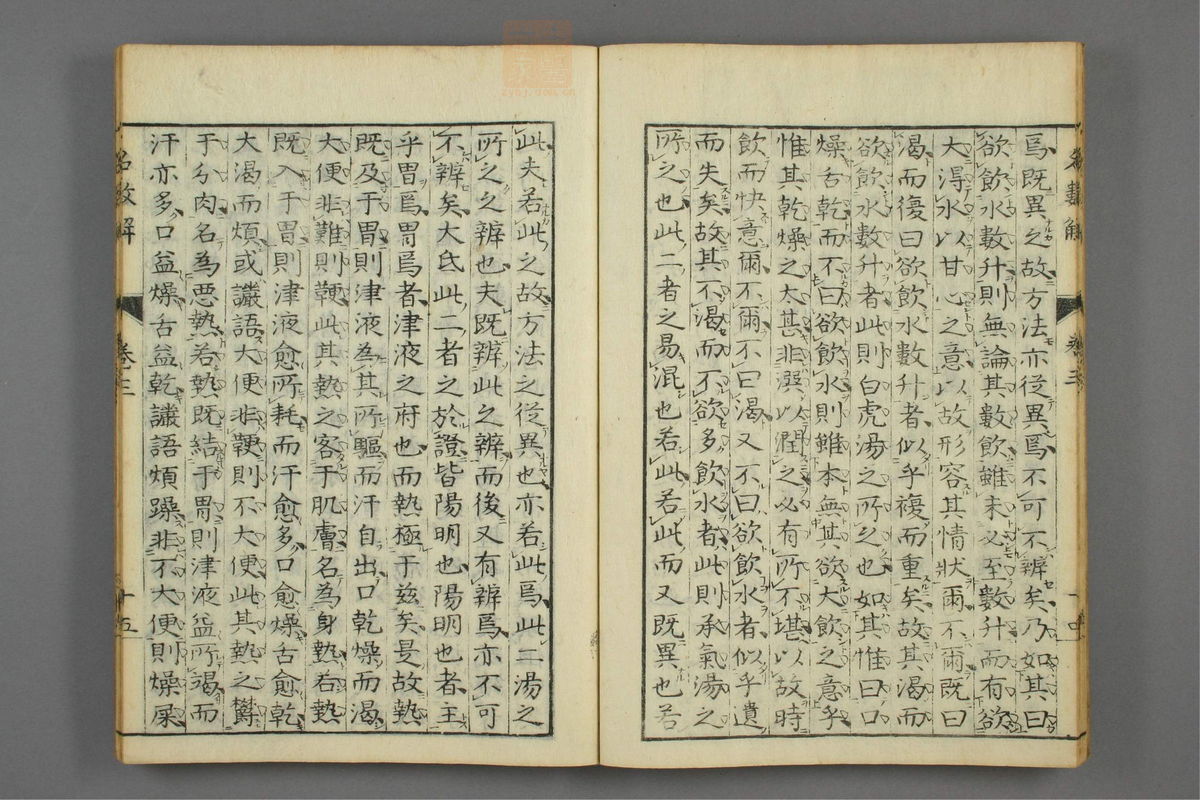 爲既異之故方法亦從異焉不可不辨矣乃如其曰
欲飲水數升則無論其數飲雖未必至數升而有欲
大得水以甘心之意以故形容其情狀爾不爾既曰
渴而復曰欲飲水數升者似乎複而重矣故其渴而
欲飲水數升者此則白虎湯之所之也如其惟曰口
燥舌乾而不曰欲飲水則雖本無其欲大飲之意乎
惟其乾燥之太甚非潠以潤之必有所不堪以故時
飲而快意爾不爾不曰渴又不曰欲飲水者似乎遺
而失矣故其不渴而不欲多飲水者此則承氣湯之
所之也此二者之易混也若此若此而又既異也若
此夫若此之故方法之從異也亦若此焉此二湯之
所之之辨也夫既辨此之辨而後又有辨焉亦不可
不辨矣大氐此二者之於證皆陽明也陽明也者主
乎胃焉胃焉者津液之府也而熱極于兹矣是故熱
既及于胃則津液為其所驅而汗自出口乾燥而渴
大便非難則鞕此其熱之客于肌膚名為身熱若熱
既入于胃則津液愈所耗而汗愈多口愈燥舌愈乾
大渴而煩或讝語大便非鞕則不大便此其熱之欝
于分肉名為惡熱若熱既結于胃則津液益所竭而
汗亦多口益燥舌益乾讝語煩躁非不大便則燥屎
名數解 卷三 十四
名數解 卷三 十五